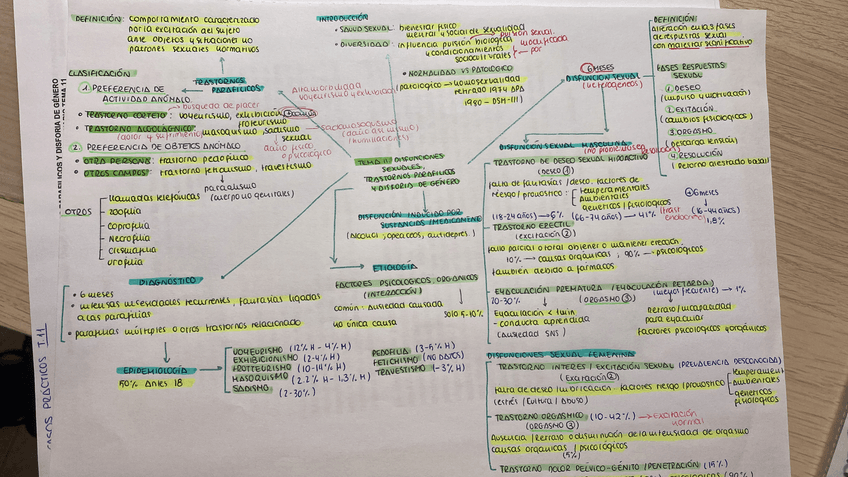 DEFINICIÓN: comportamiento caracterizado
por la excitación del sujeto
ante objetos y situaciones no
patrones sexuales normativos
CLASIFICACIÓN
TRASTORNOS
PARAFÍLICOS
① PREFERENCIA DE
ACTIVIDAD ANÓMALO
búsqueda de placer
• TRASTORNO CORTEJO: voyeurismo, exhibición
frotteurismo
• TRASTORNO ALGOLAGNICO: masoquismo, sadismo
sexual
(dolor y sufrimiento)
sadomasoquismo
(daño asimismo)
(humillaciones)
daño físico
o psicológico
Alta morbilidad
voyeurismo y exhibic
② PREFERENCIA DE OBJETOS ANÓMALO
• OTRA PERSONA: trastorno pedofílico
• OTROS CAMPOS: trastorno fetichismo, travestismo
parcialismo
(cuerpo no genitales)
OTROS
llamadas telefónicas
zoofilia
coprofilia
Necrofilia
clismafilia
urofilia
INTRODUCCIÓN
• SALUD SEXUAL: bienestar físico
mental y social de sexualidad
• DIVERSIDAD: influencia pulsión biológica
y condicionamientos
socioculturales
pulsión sexual
modificada
por
• NORMALIDAD VS PATOLÓGICO
(patológico → homosexualidad
retirado 1974 APA
1980 - DSM-III)
TEMA 11: DISFUNCIONES
SEXUALES,
TRASTORNOS PARAFÍLICOS
Y DISFORIA DE GÉNERO
DISFUNCIÓN INDUCIDO POR
SUSTANCIAS/MEDICAMENT
(Alcohol, opiáceos, antidepres.)
ETIOLOGÍA
FACTORES PSICOLÓGICOS, ORGÁNICOS
(INTERACCIÓN)
común: Ansiedad causada
no única causa
solo 5-10%
DIAGNÓSTICO
• 6 meses
• intensas necesidades recurrentes, fantasías ligadas
a las parafilias
• parafilias múltiples o otros trastornos relacionado
EPIDEMIOLOGÍA
50% Antes 18
VOYEURISMO (12% H - 4% M)
EXHIBICIONISMO (2-4% H)
FROTTEURISMO (10-14% H)
MASOQUISMO (2.2% H - 1.3% M)
SADISMO (2-30%)
PEDOFILIA (3-5% H)
FETICHISMO (NO DATOS)
TRAVESTISMO (-3% H)
⑥ MESES
DISFUNCIÓN SEXUAL
(heterogéneos)
DEFINICIÓN:
Alteración en las fases
de respuestas sexual
con malestar significativo
FASES RESPUESTAS
SEXUAL
① DESEO
(impulso y motivación)
② EXCITACIÓN
(cambios fisiológicos)
③ ORGASMO
(descarga tensión)
④ RESOLUCIÓN
(retorno a estado basal)
DISFUNCIÓN SEXUAL MASCULINA
TRASTORNO DE DESEO SEXUAL HIPOACTIVO
(DESEO ①)
falta de fantasías/deseo. factores de
riesgo/pronóstico:
temperamentales
Ambientales
genéticos/fisiológicos
+ 6 meses
(trast
endocrino)
(18-24 años) → 6%
(66-74 años) → 41%
(16-44 años)
1,8%
TRASTORNO ERÉCTIL
(excitación ②)
fallo parcial o total obtener o mantener erección
10% → causas orgánicas, 90% → psicológicos
también debido a fármacos
EYACULACIÓN PREMATURA (EYACULACIÓN RETARDA)
20-30%
(ORGASMO ③)
(menos frecuente) → 1%
Eyaculación < 1min
- conducta aprendida
(Ansiedad SNS)
Retraso/incapacidad
para eyacular
factores psicológicos y orgánicos
DISFUNCIONES SEXUAL FEMENINA
TRASTORNO INTERÉS / EXCITACIÓN SEXUAL (PREVALENCIA DESCONOCIDA)
(Excitación ②)
falta de deseo/lubricación. factores riesgo/pronóstico
(estrés/cultura/abuso)
temperament
ambientales
genéticos
fisiológicos
TRASTORNO ORGÁSMICO (10-42%) → Excitación
normal
(ORGASMO ③)
Ausencia/Retraso o disminución de la intensidad de orgasmo
causas orgánicas/psicológicos
(5%)
TRASTORNO DOLOR PÉLVICO-GÉNITO/PENETRACIÓN: (15%)
CASOS PRÁCTICOS T.11